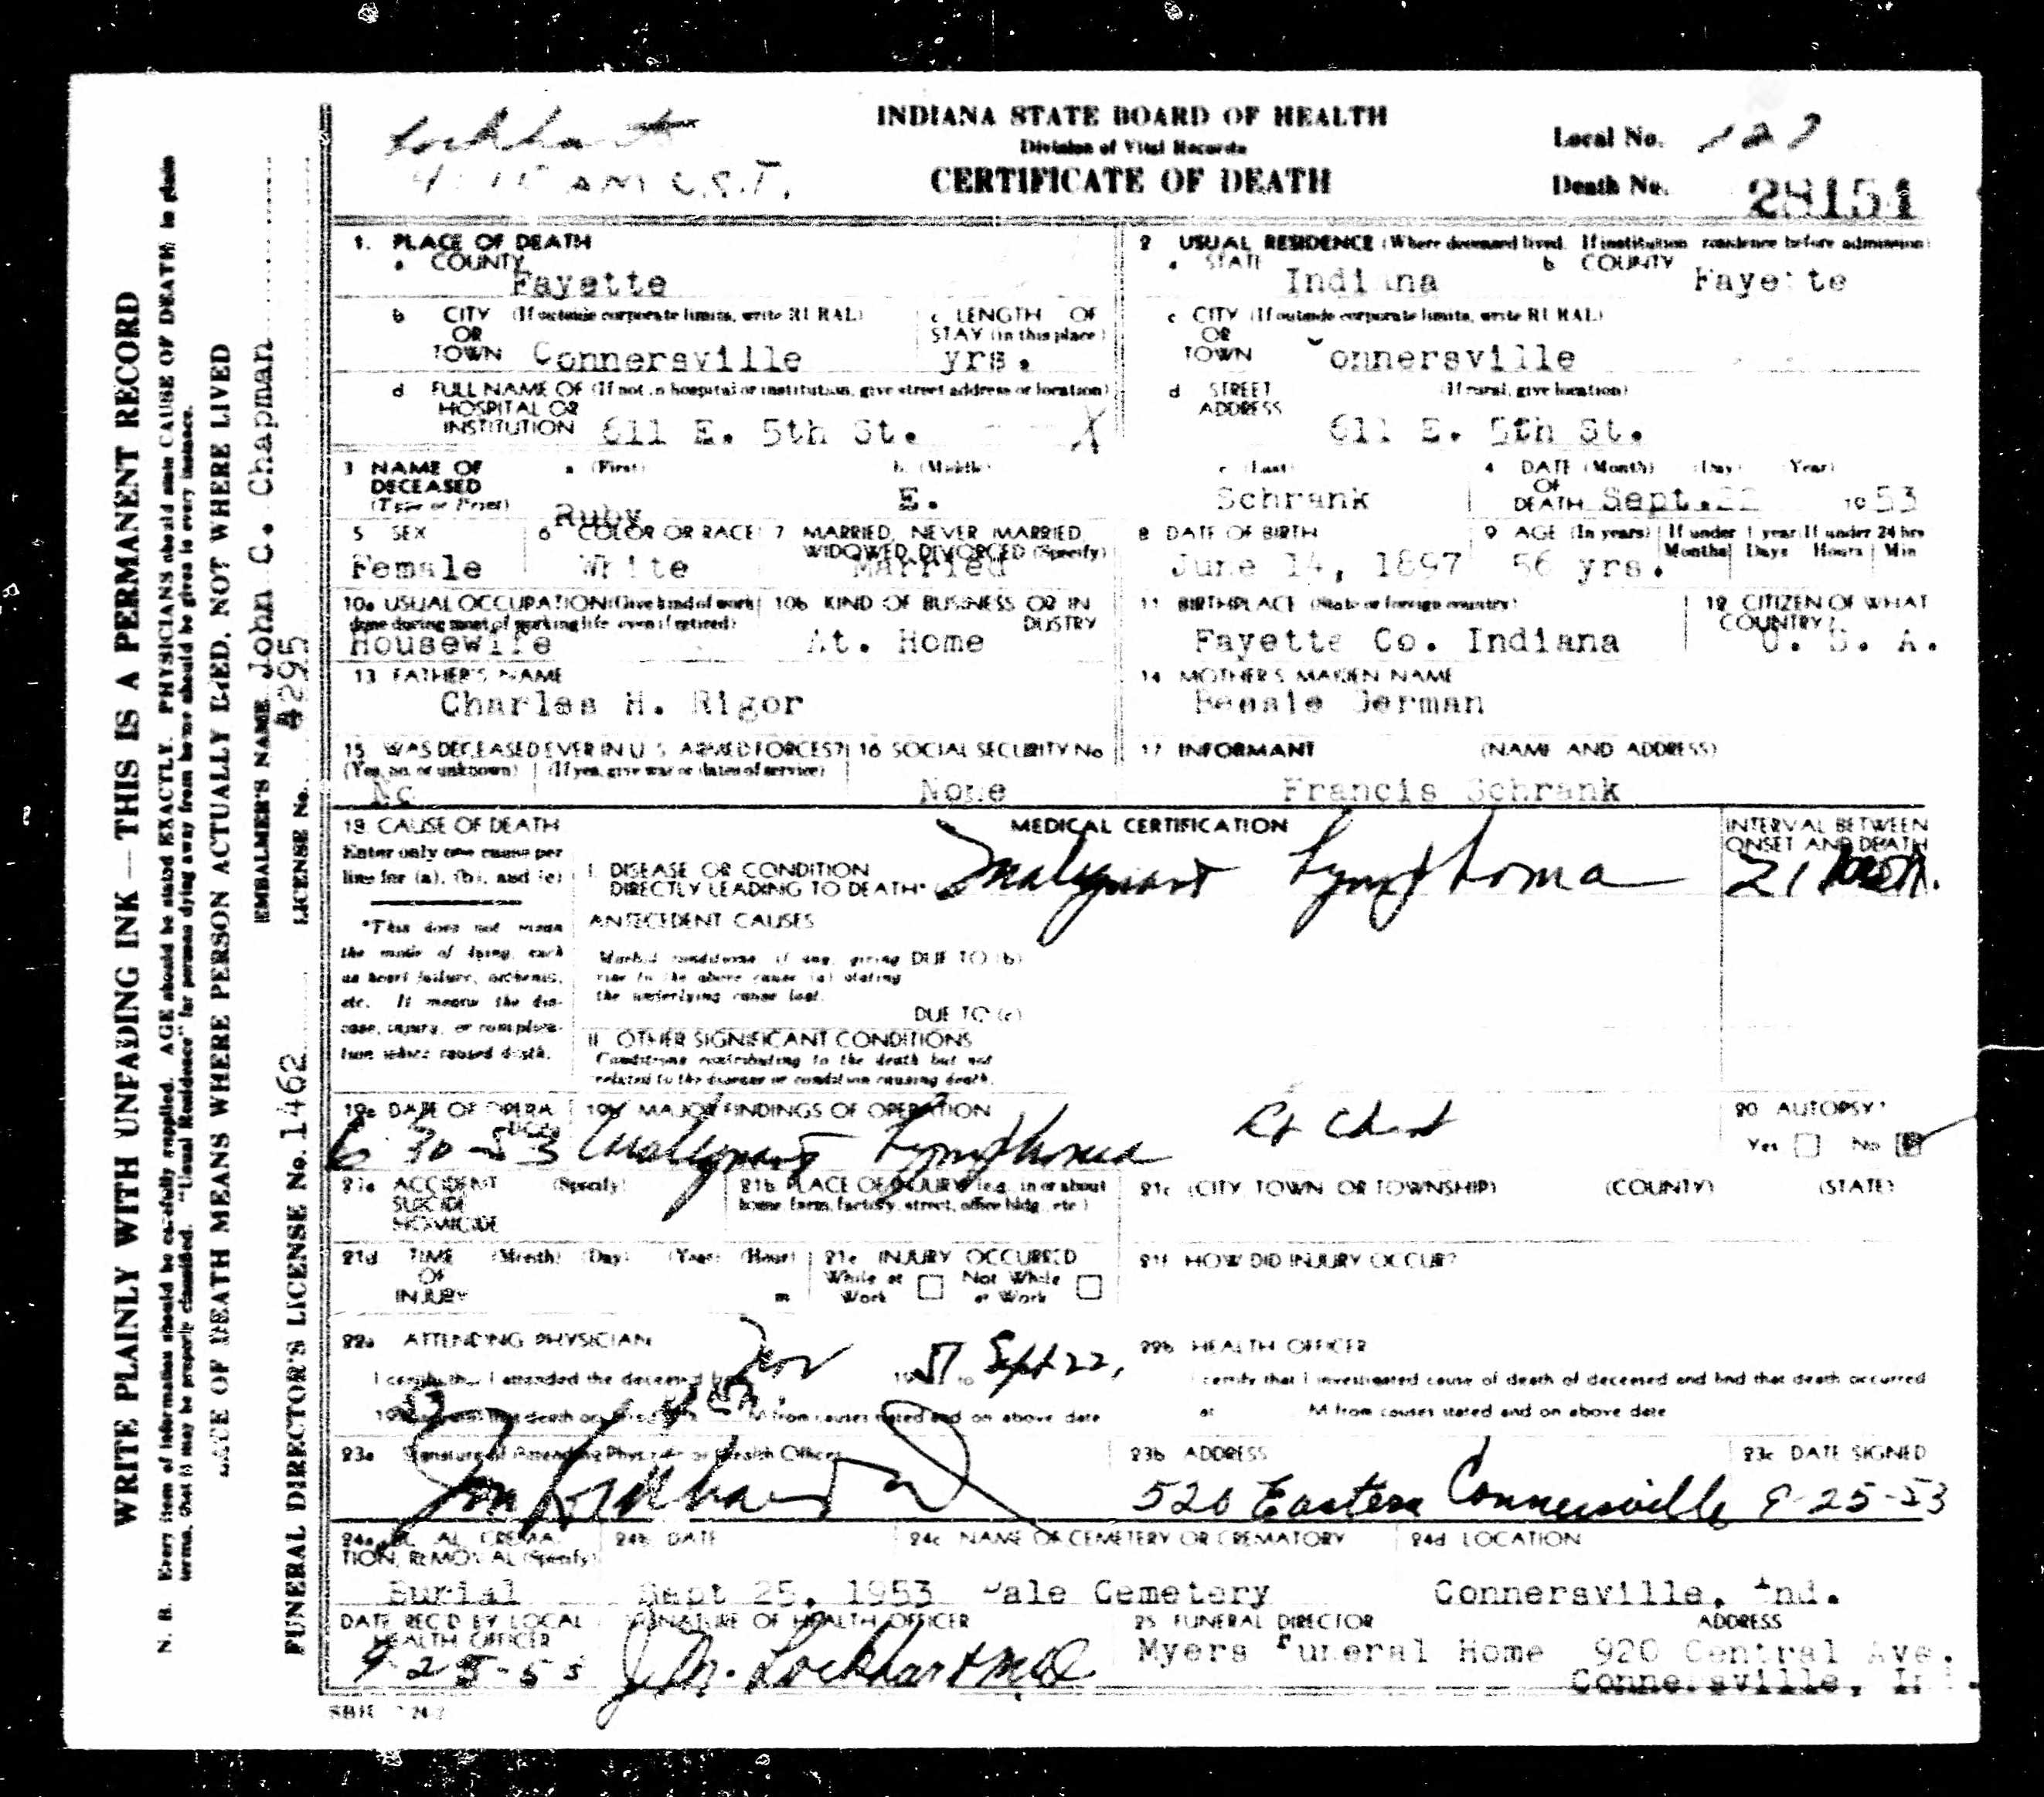 Lockhart
4:15 AM C.S.T.
INDIANA STATE BOARD OF HEALTH
Division of Vital Records
CERTIFICATE OF DEATH
Local No.
Death No. 28151
1. PLACE OF DEATH
a COUNTY
Fayette
2 USUAL RESIDENCE (Where deceased lived. If institution residence before admission)
a STATE Indiana b COUNTY Fayette
b CITY OR TOWN (If outside corporate limits, write RURAL) Connersville
c LENGTH OF STAY (in this place) yrs.
c CITY OR TOWN (If outside corporate limits, write RURAL) Connersville
d FULL NAME OF HOSPITAL OR INSTITUTION (If not in hospital or institution, give street address or location) 611 E. 5th St. X
d STREET ADDRESS (If rural, give location) 611 E. 5th St.
3 NAME OF DECEASED (Type or Print) a (First) Ruby b. (Middle) E. c (Last) Schrank
4 DATE OF DEATH (Month) (Day) (Year) Sept.22 1953
5 SEX Female
6 COLOR OR RACE White
7 MARRIED, NEVER MARRIED, WIDOWED, DIVORCED (Specify) Married
8 DATE OF BIRTH June 14, 1897
9 AGE (In years) 56 yrs. If under 1 year Months Days If under 24 hrs Hours Min
10a USUAL OCCUPATION (Give kind of work done during most of working life even if retired) Housewife
10b KIND OF BUSINESS OR INDUSTRY At. Home
11 BIRTHPLACE (State or foreign country) Fayette Co. Indiana
12 CITIZEN OF WHAT COUNTRY? U. S. A.
13 FATHER'S NAME
Charles H. Rigor
14 MOTHER'S MAIDEN NAME
Bessie
15 WAS DECEASED EVER IN U. S. ARMED FORCES?
(Yes, no, or unknown) (If yes, give war or dates of service)
No
16 SOCIAL SECURITY No
None
17 INFORMANT (NAME AND ADDRESS)
Francis Schrank
18 CAUSE OF DEATH
Enter only one cause per
line for (a), (b), and (c)
*This does not mean
the mode of dying, such
as heart failure, asthenia,
etc. It means the dis-
ease, injury, or complica-
tion which caused death.
MEDICAL CERTIFICATION
I. DISEASE OR CONDITION
DIRECTLY LEADING TO DEATH* (a) Malignant Lymphoma
INTERVAL BETWEEN
ONSET AND DEATH
21
ANTECEDENT CAUSES
Morbid conditions, if any, giving DUE TO (b)
rise to the above cause (a) stating
the underlying cause last.
DUE TO (c)
II OTHER SIGNIFICANT CONDITIONS
Conditions contributing to the death but not
related to the disease or condition causing death.
19a DATE OF OPERATION
6-30-53
19b MAJOR FINDINGS OF OPERATION
Malignant Lymphoma Rt Chest
20 AUTOPSY?
Yes No
21a ACCIDENT (Specify)
SUICIDE
HOMICIDE
21b PLACE OF INJURY (e.g., in or about
home, farm, factory, street, office bldg., etc.)
21c (CITY, TOWN OR TOWNSHIP) (COUNTY) (STATE)
21d TIME OF INJURY (Month) (Day) (Year) (Hour) m
21e INJURY OCCURRED
While at Work Not While at Work
21f HOW DID INJURY OCCUR?
22a ATTENDING PHYSICIAN
I certify that I attended the deceased from Nov 1951 to Sept 22,
1953 and that death occurred at M from causes stated and on above date
22b HEALTH OFFICER
I certify that I investigated cause of death of deceased and find that death occurred
at M from causes stated and on above date
23a Signature of Attending Physician or Health Officer
23b ADDRESS
520 Eastern Connersville
23c DATE SIGNED
9-25-53
24a BURIAL, CREMATION, REMOVAL (Specify)
Burial
24b DATE
Sept 25, 1953
24c NAME OF CEMETERY OR CREMATORY
Dale Cemetery
24d LOCATION
Connersville, Ind.
DATE REC'D BY LOCAL
HEALTH OFFICER
9-25-53
SIGNATURE OF HEALTH OFFICER
J.M. Lockhart MD
25 FUNERAL DIRECTOR ADDRESS
Myers Funeral Home 920 Central Ave.
Connersville, Ind.
WRITE PLAINLY WITH UNFADING INK—THIS IS A PERMANENT RECORD
N. B. Every item of information should be carefully supplied. AGE should be stated EXACTLY. PHYSICIANS should state CAUSE OF DEATH in plain
terms, that it may be properly classified. "Usual Residence" for persons dying away from home should be given in every instance.
PLACE OF DEATH MEANS WHERE PERSON ACTUALLY DIED, NOT WHERE LIVED
EMBALMER'S NAME John C. Chapman
FUNERAL DIRECTOR'S LICENSE No. 1462 LICENSE No. 4295